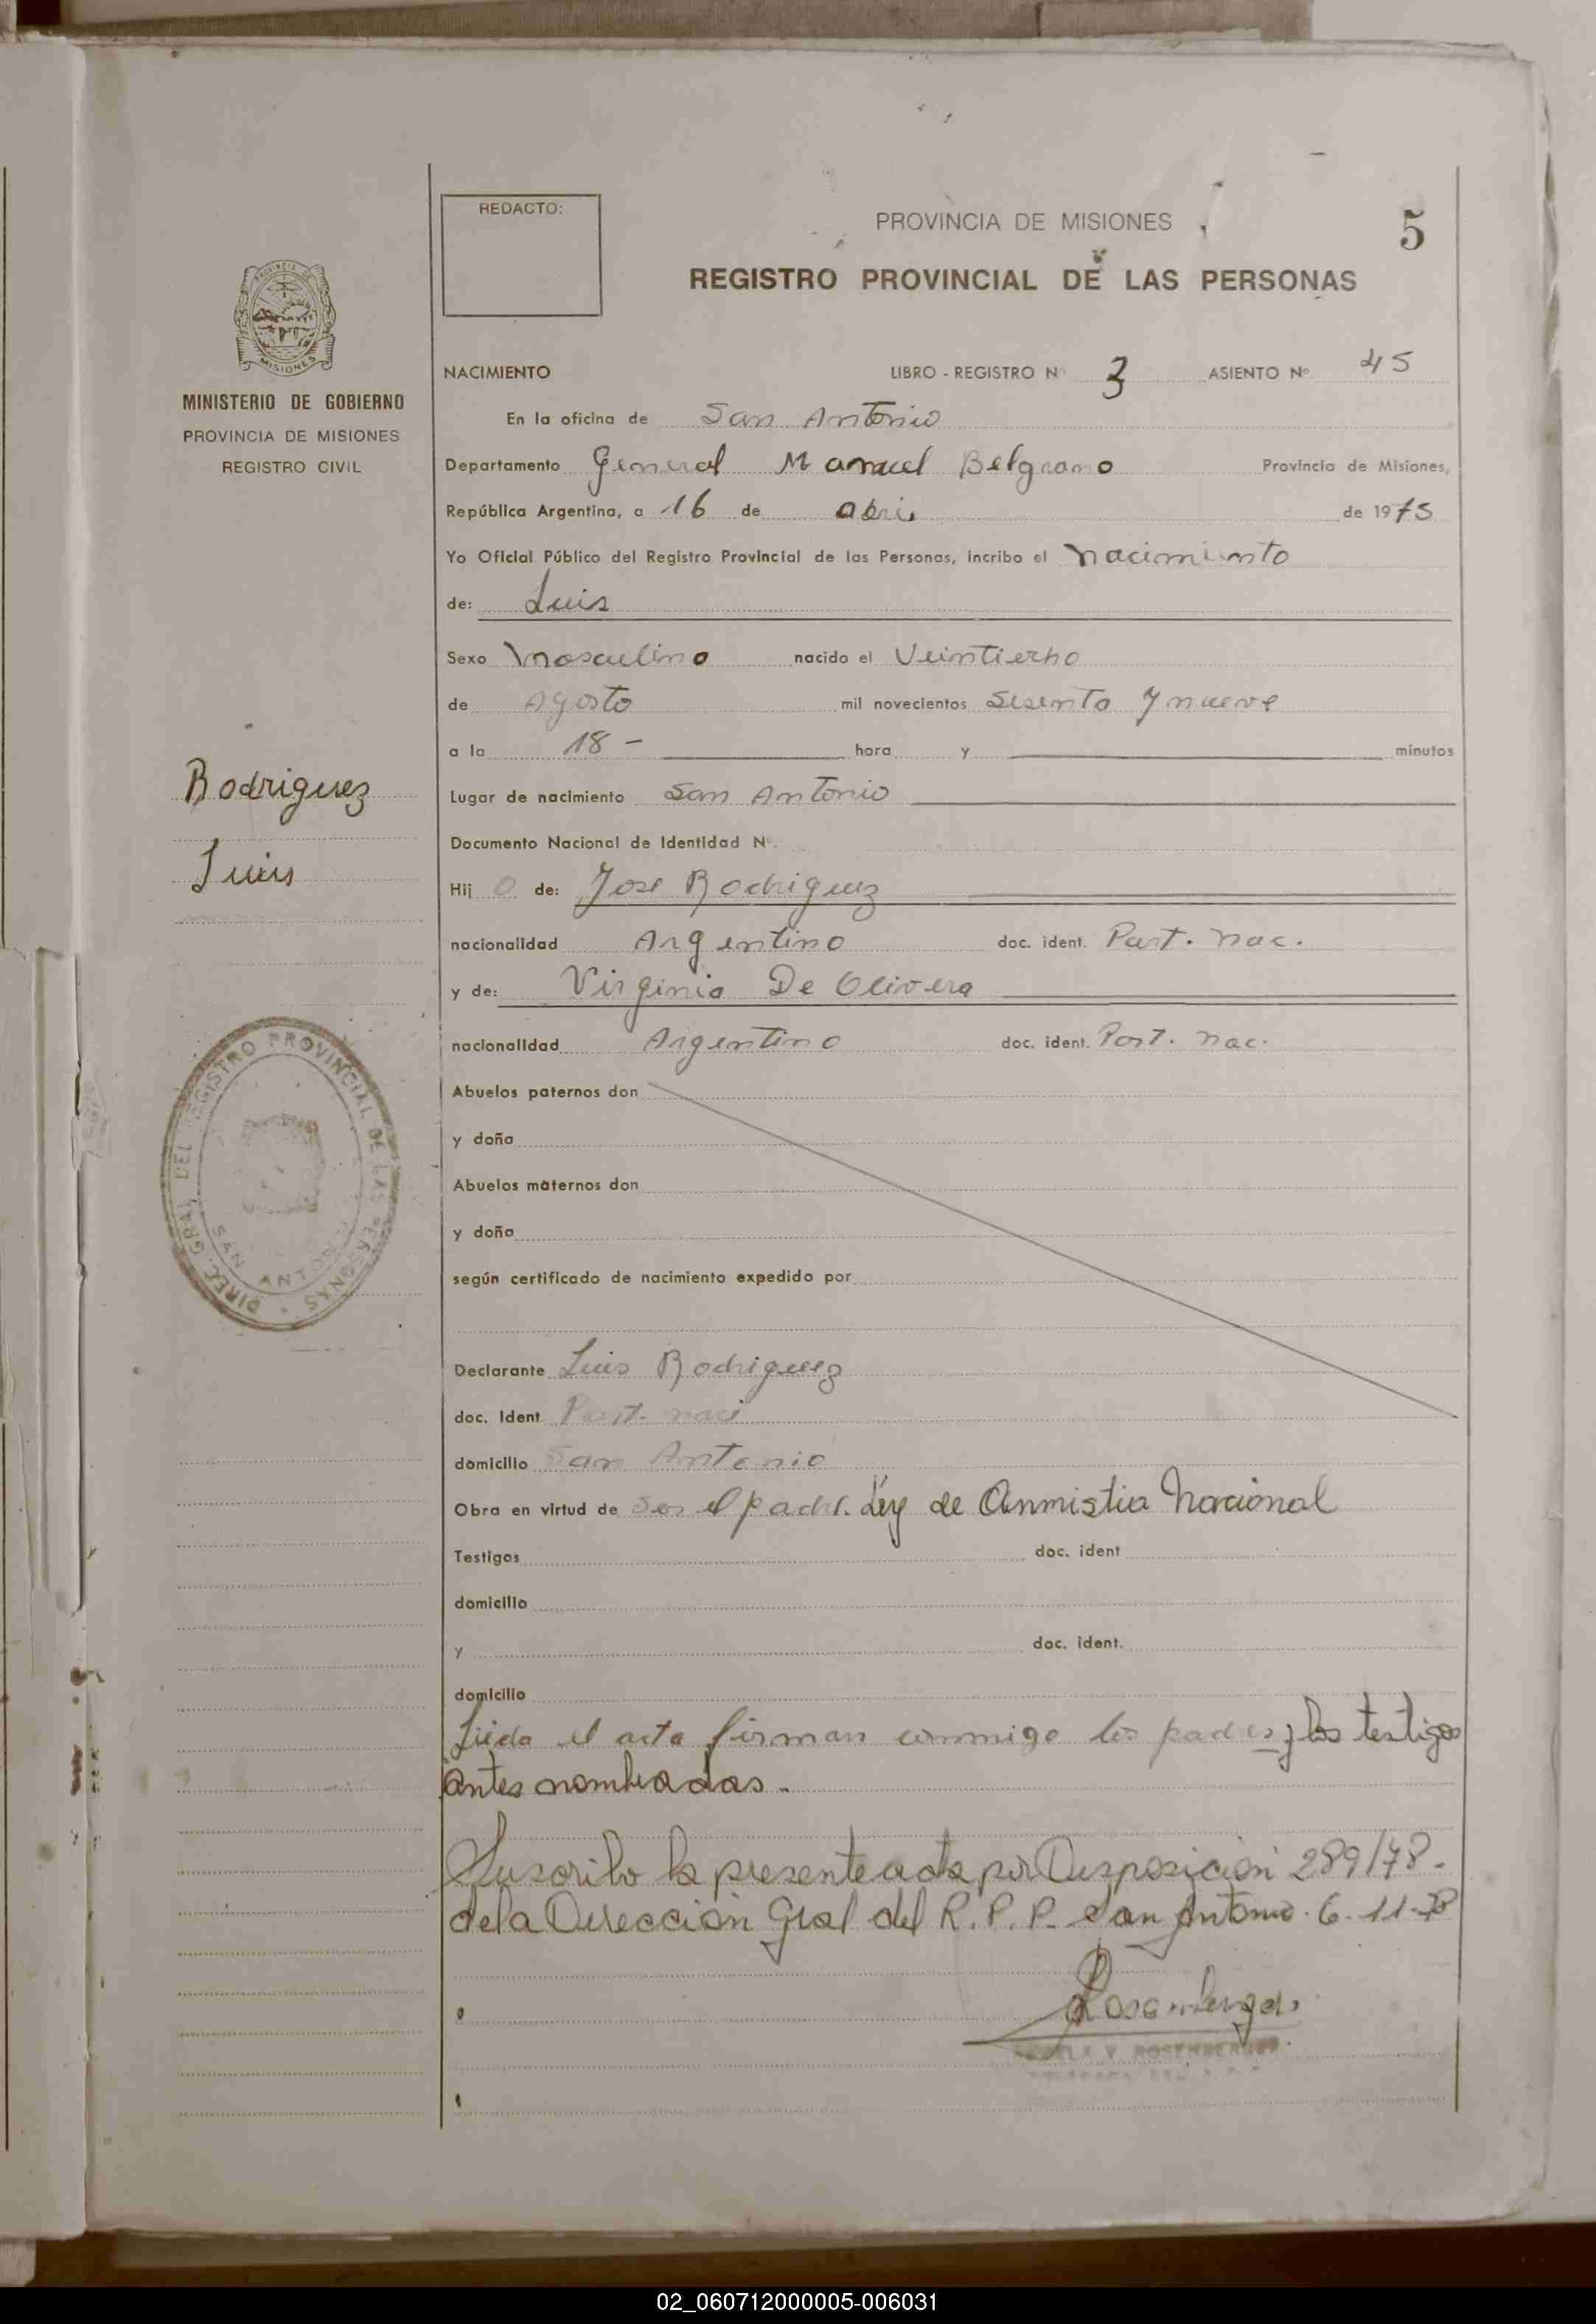 REDACTO:
PROVINCIA DE MISIONES
5
REGISTRO PROVINCIAL DE LAS PERSONAS
PROVINCIA DE
MISIONES
MINISTERIO DE GOBIERNO
PROVINCIA DE MISIONES
REGISTRO CIVIL
NACIMIENTO LIBRO - REGISTRO Nº 3 ASIENTO Nº 45
En la oficina de San Antonio
Departamento General Manuel Belgrano Provincia de Misiones,
República Argentina, a 16 de abril de 1975
Yo Oficial Público del Registro Provincial de las Personas, incribo el nacimiento
de: Luis
Sexo Masculino nacido el Veintiocho
de Agosto mil novecientos Sesenta y nueve
a la 18 - hora y minutos
Rodriguez
Luis
Lugar de nacimiento San Antonio
Documento Nacional de Identidad Nº.
Hij o de: Jose Rodriguez
nacionalidad Argentino doc. ident. Part. nac.
y de: Virginia De Olivera
nacionalidad Argentino doc. ident. Part. nac.
DIREC. GRAL. DEL REGISTRO PROVINCIAL DE LAS PERSONAS
SAN ANTONIO
Abuelos paternos don
y doña
Abuelos maternos don
y doña
según certificado de nacimiento expedido por
Declarante Luis Rodriguez
doc. Ident Part. naci
domicilio San Antonio
Obra en virtud de Ser el padre. Ley de Anmistia Nacional
Testigos doc. ident
domicilio
y doc. ident.
domicilio
Leida el acta firman conmigo los padres y los testigos
antes nombrados.
Suscribo la presente acta por Disposición 289/78.
de la Dirección Gral del R.P.P. San Antonio. 6.11.78
ROSENBERGER
02_060712000005-006031